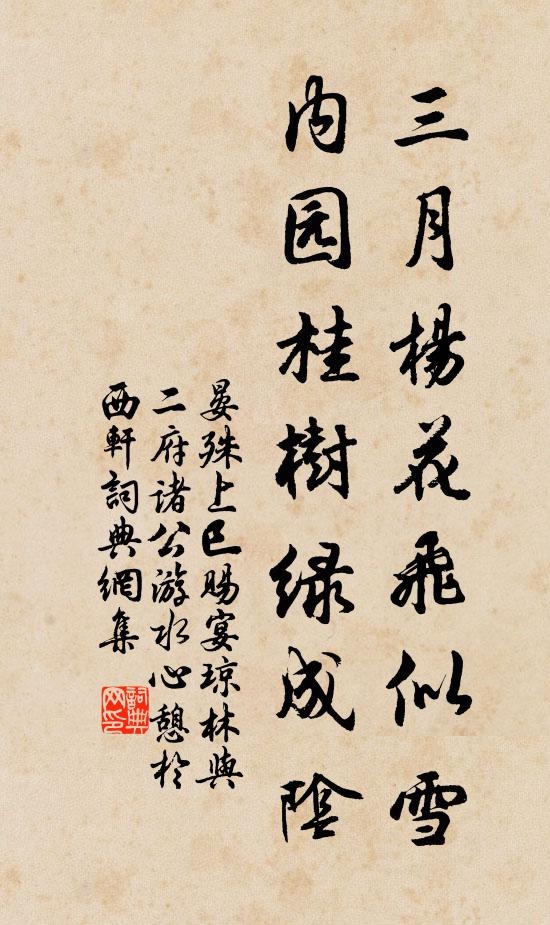 三月楊花飛似雪
内园桂樹緑成陰
晏殊上巳賜宴琼林與
二府諸公游水心憩於
西軒詞典網集
詞典
网印